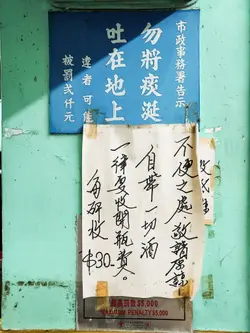 市政事務署告示
勿將痰涎
吐在地上
違者可能
被罰弍仟元
不便之處,敬請原諒
自帶一切酒
一律要收開瓶費。
每 收
$30-
最高罰款$5,000
MAXIMUM PENALTY $5,000